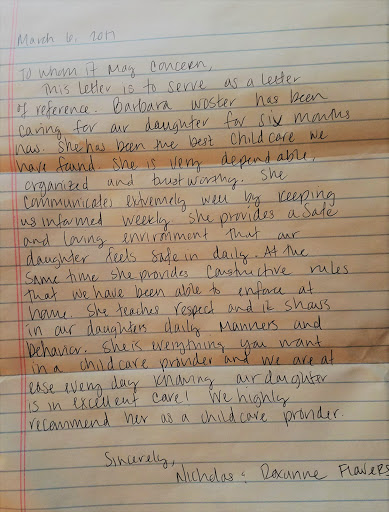 March 6, 2017
To whom it may concern,
This letter is to serve as a letter
of reference. Barbara Woster has been
caring for our daughter for six months
now. She has been the best childcare we
have found. She is very dependable,
organized and trustworthy. She
communicates extremely well by keeping
us informed weekly. She provides a safe
and loving environment that our
daughter feels safe in daily. At the
same time she provides constructive rules
that we have been able to enforce at
home. She teaches respect and it shows
in our daughters daily manners and
behavior. She is everything you want
in a childcare provider and we are at
ease every day knowing our daughter
is in excellent care! We highly
recommend her as a childcare provider.
Sincerely,
Nicholas & Roxanne Flowers